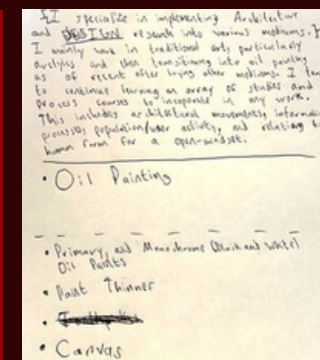 {I specialize in implementing Architecture
and DESIGN research into various mediums.}
I mainly work in traditional arts particularly
acrylics and then transitioning into oil painting
as of recent after trying other mediums. I
to continue learning an array of studies and
process courses to incorporate in my work.
This includes architectural movements,
processes, population/user activity, and relating
human form for a open-mindset.
• Oil Painting
• Primary and Monochrome (Black and White)
Oil Paints
• Paint Thinner
• Canvas